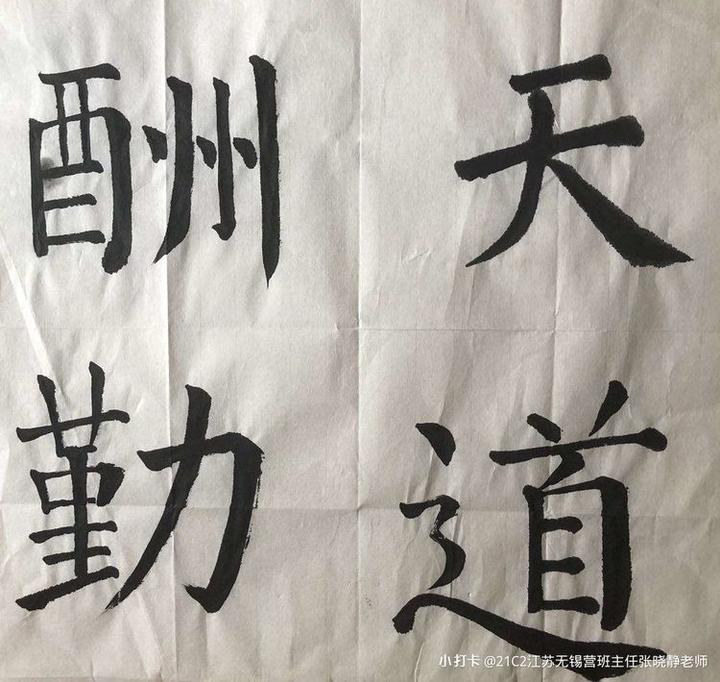 天道
酬勤
小打卡 @21C2江苏无锡营班主任张晓静老师